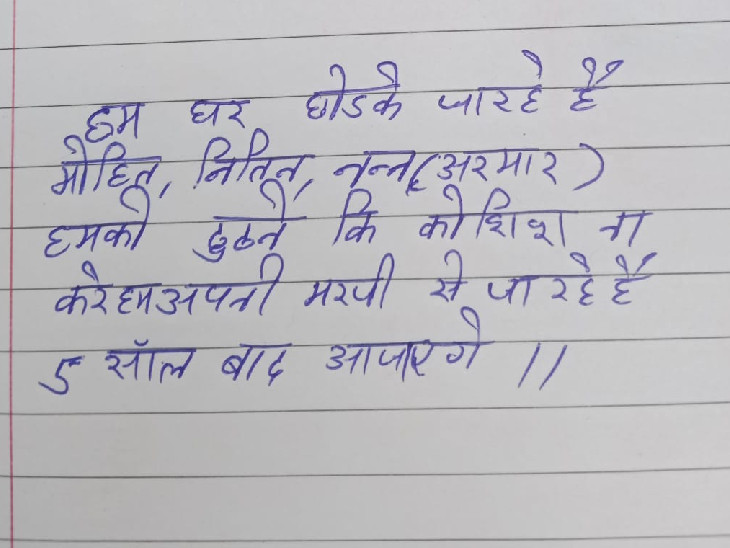 हम घर छोडके जारहे हैं
मोहित, नितिन, नन्नु(अरमार)
हमको ढुढने कि कोशिश ना
करे हम अपनी मरजी से जा रहे हैं
5 सॉल बाद आजाएगे ||